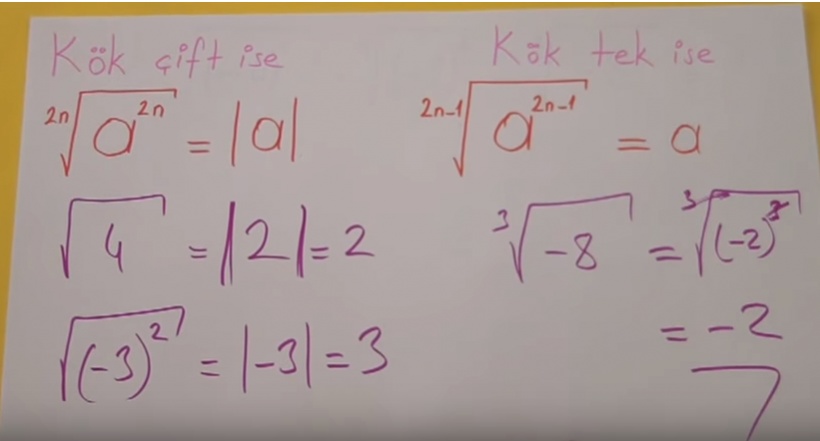 Kök çift ise
²ⁿ√a²ⁿ = |a|
√4 = |2| = 2
√(-3)² = |-3| = 3
Kök tek ise
²ⁿ⁻¹√a²ⁿ⁻¹ = a
³√-8 = ³√(-2)³
= -2